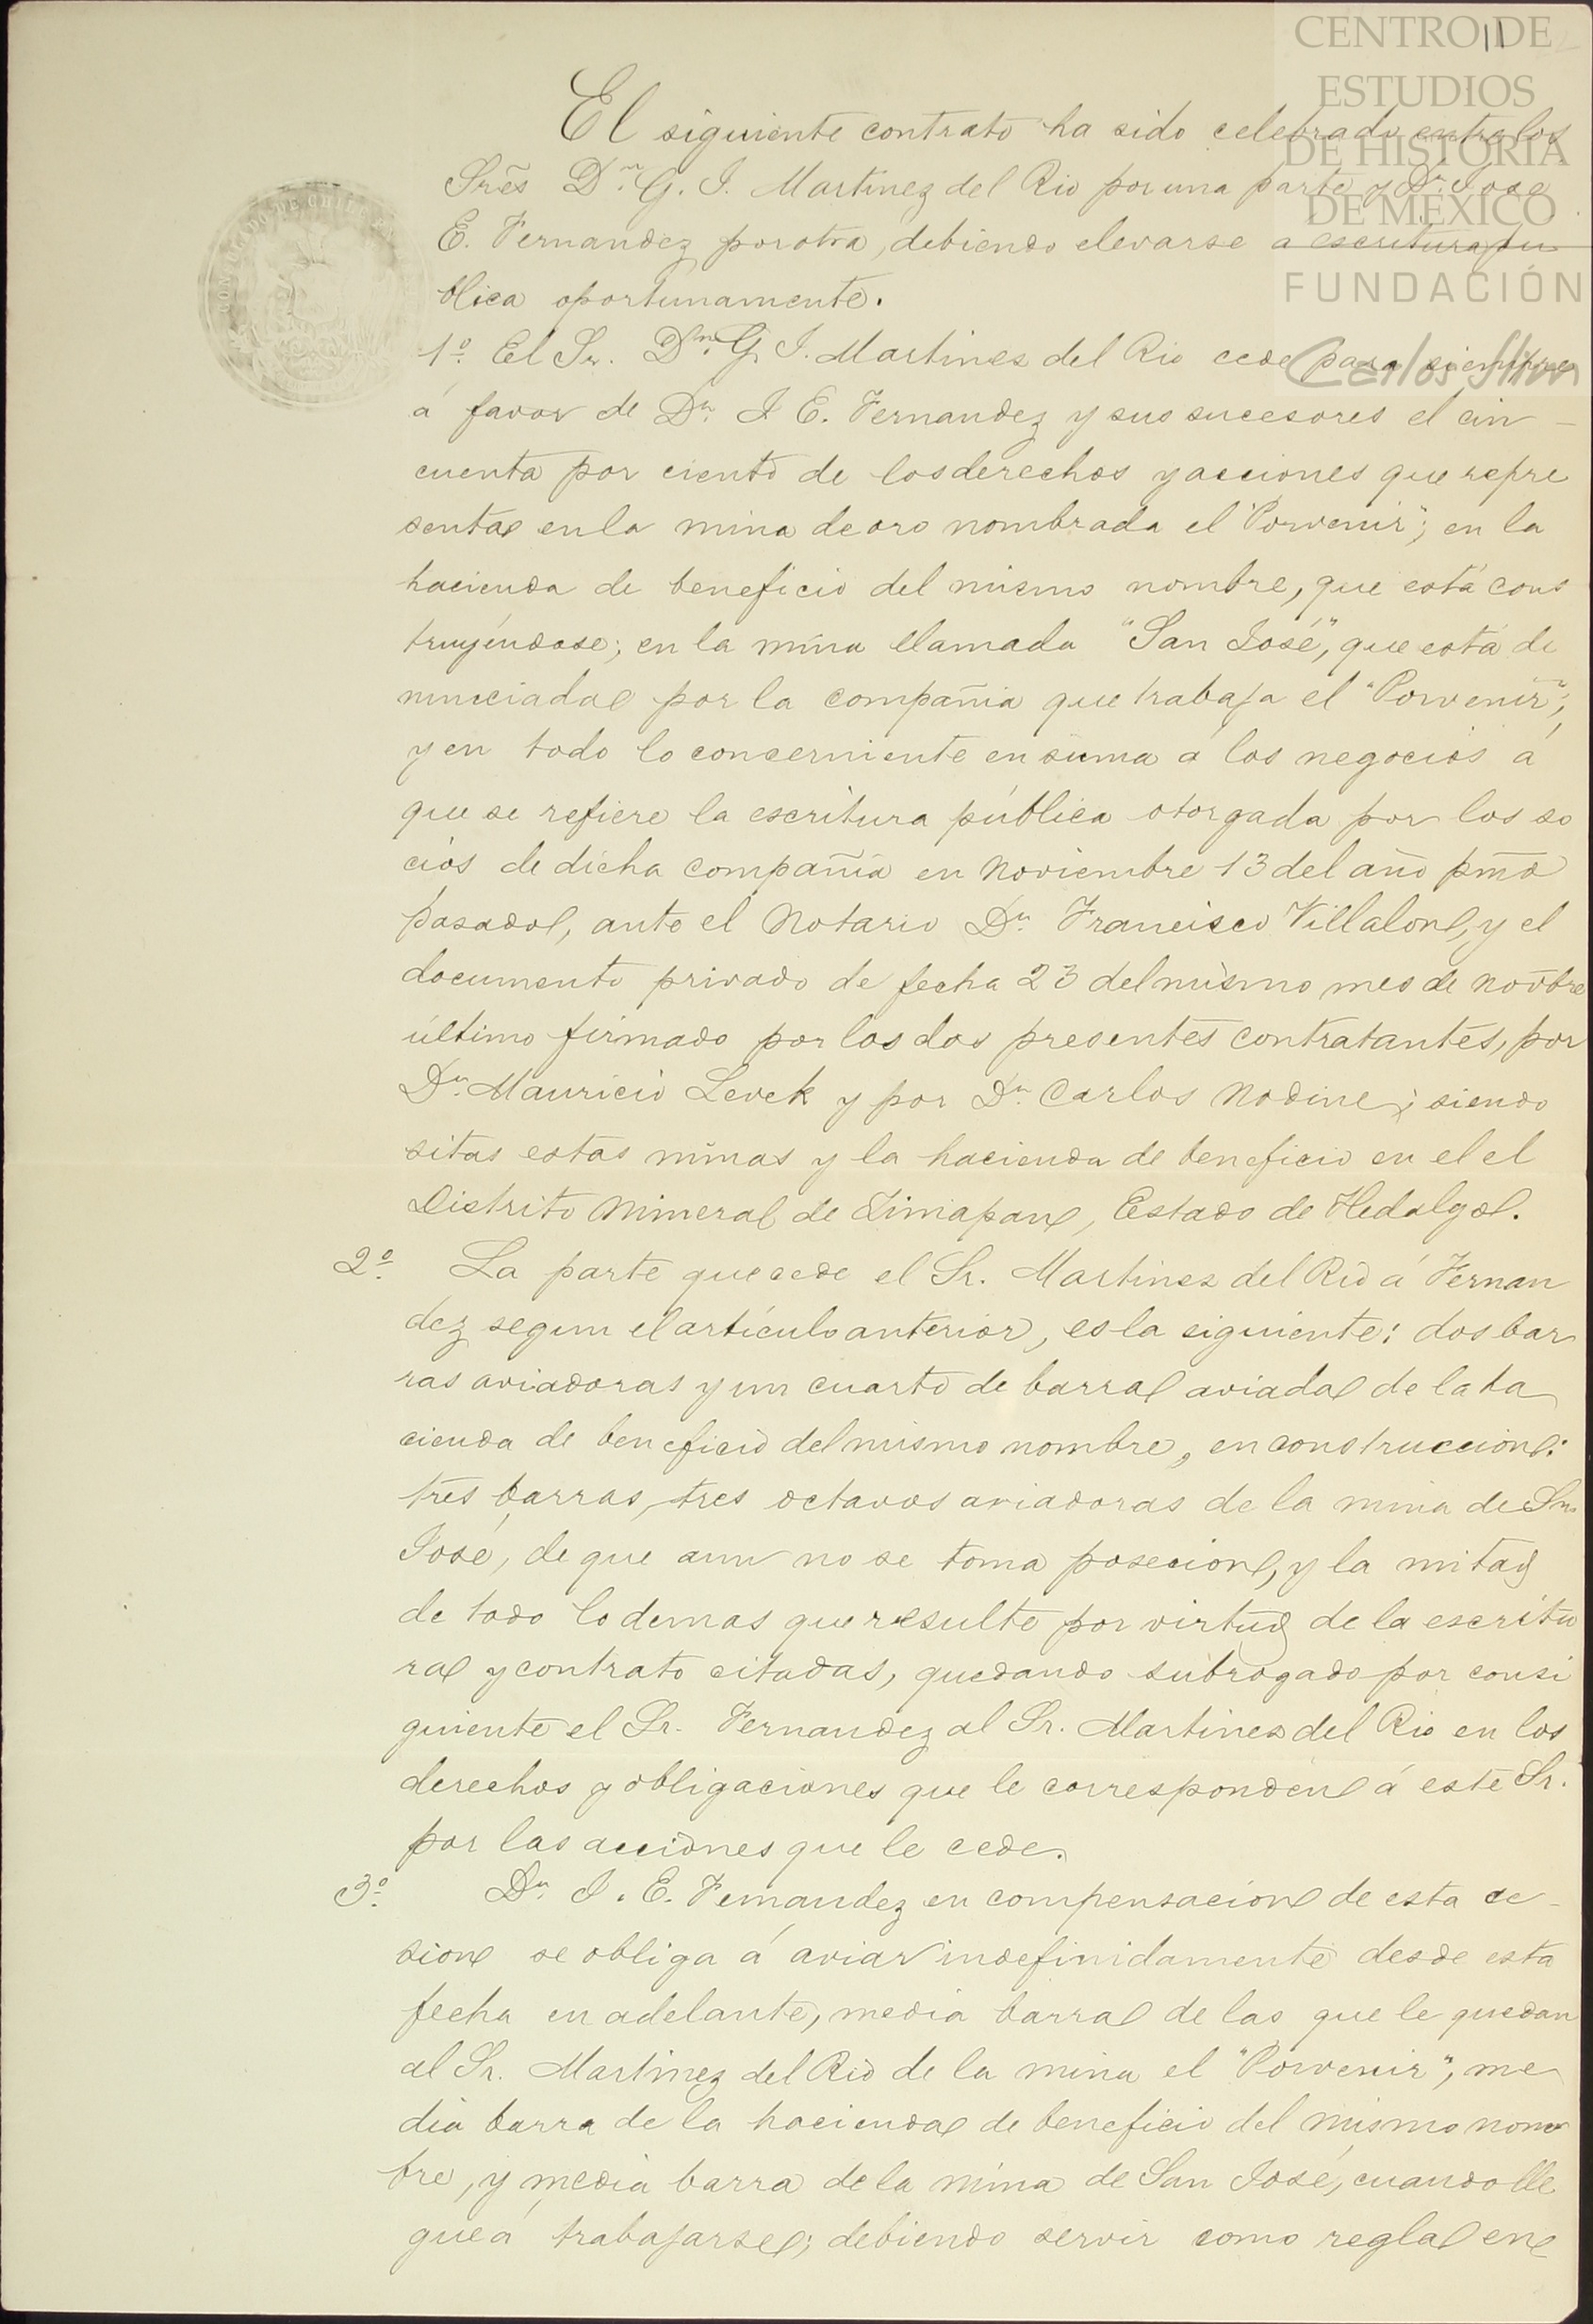 CENTRO DE
11
ESTUDIOS
DE HISTORIA
DE MÉXICO
FUNDACIÓN
Carlos Slim
El siguiente contrato ha sido celebrado entre los
Sres Dn. G. I. Martinez del Rio por una parte y Dn. Jose
E. Fernandez por otra, debiendo elevarse a escritura pu
blica oportunamente.
1º. El Sr. Dn. G. I. Martinez del Rio cede para siempre
á favor de Dn. J. E. Fernandez y sus sucesores el cin-
cuenta por ciento de los derechos y acciones que repre
senta en la mina de oro nombrada el "Porvenir"; en la
hacienda de beneficio del mismo nombre, que está cons
truyéndose; en la mina llamada "San José", que está de
nunciada por la compañia que trabaja el "Porvenir";
y en todo lo concerniente en suma á los negocios á
que se refiere la escritura pública otorgada por los so
cios de dicha compañia en Noviembre 13 del año pmo
pasado, ante el Notario Dn. Francisco Villalon, y el
documento privado de fecha 23 del mismo mes de Novbre
último firmado por los dos presentes contratantes, por
Dn. Mauricio Levek y por Dn. Carlos Nodine; siendo
sitas estas minas y la hacienda de beneficio en el el
Distrito Mineral de Zimapan, Estado de Hidalgo.
2º. La parte que cede el Sr. Martinez del Rio á Fernan
dez segun el artículo anterior, es la siguiente: dos bar
ras aviadoras y un cuarto de barra aviada de la ha
cienda de beneficio del mismo nombre, en construccion:
tres barras, tres octavos aviadoras de la mina de Sn.
José, de que aun no se toma posecion, y la mitad
de todo lo demas que resulte por virtud de la escritu
ra y contrato citadas, quedando subrogado por consi
guiente el Sr. Fernandez al Sr. Martinez del Rio en los
derechos y obligaciones que le corresponden á este Sr.
por las acciones que le cede.
3º. Dn. J. E. Fernandez en compensacion de esta ce-
sion se obliga á aviar indefinidamente desde esta
fecha en adelante, media barra de las que le quedan
al Sr. Martinez del Rio de la mina el "Porvenir", me
dia barra de la hacienda de beneficio del mismo nom
bre, y media barra de la mina de San José, cuando lle
gue á trabajarse; debiendo servir como regla en